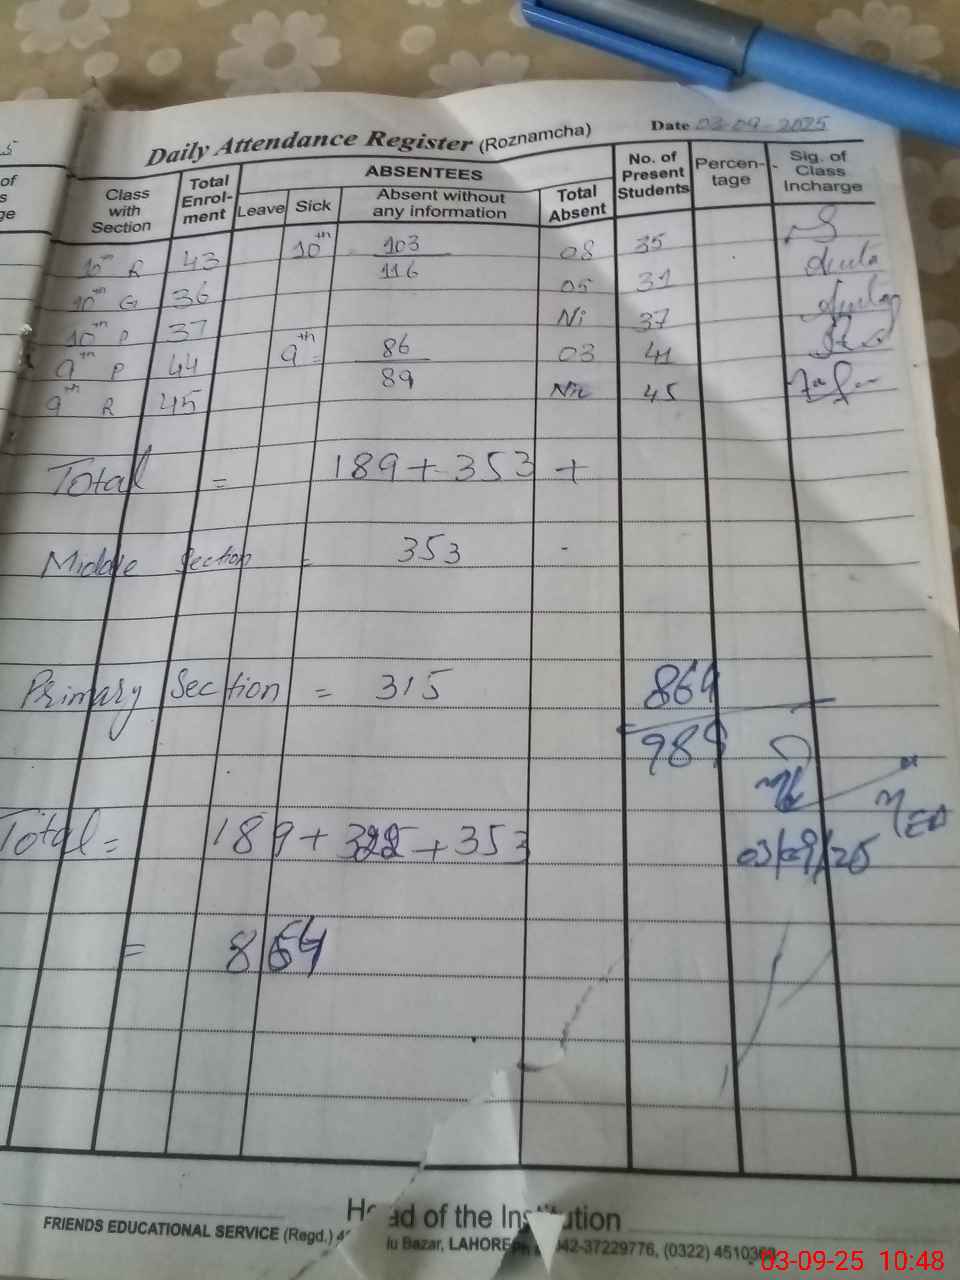 Daily Attendance Register (Roznamcha) Date 03-09-2025
Class with Section
Total Enrol-ment
ABSENTEES
Leave Sick Absent without any information
Total Absent
No. of Present Students
Percen-tage
Sig. of Class Incharge
10th R 43 10th = 103 08 35
116
10th G 36 05 31
10th P 37 Ni 37
9th P 44 9th = 86 03 41
89
9th R 45 Nil 45
Total = 189 + 353 +
Middle Section = 353 -
Primary Section = 315
864
989
Total = 189 + 322 + 353
03/09/25
= 864
Head of the Institution
FRIENDS EDUCATIONAL SERVICE (Regd.) Bazar, LAHORE 042-37229776, (0322) 4510
03-09-25 10:48